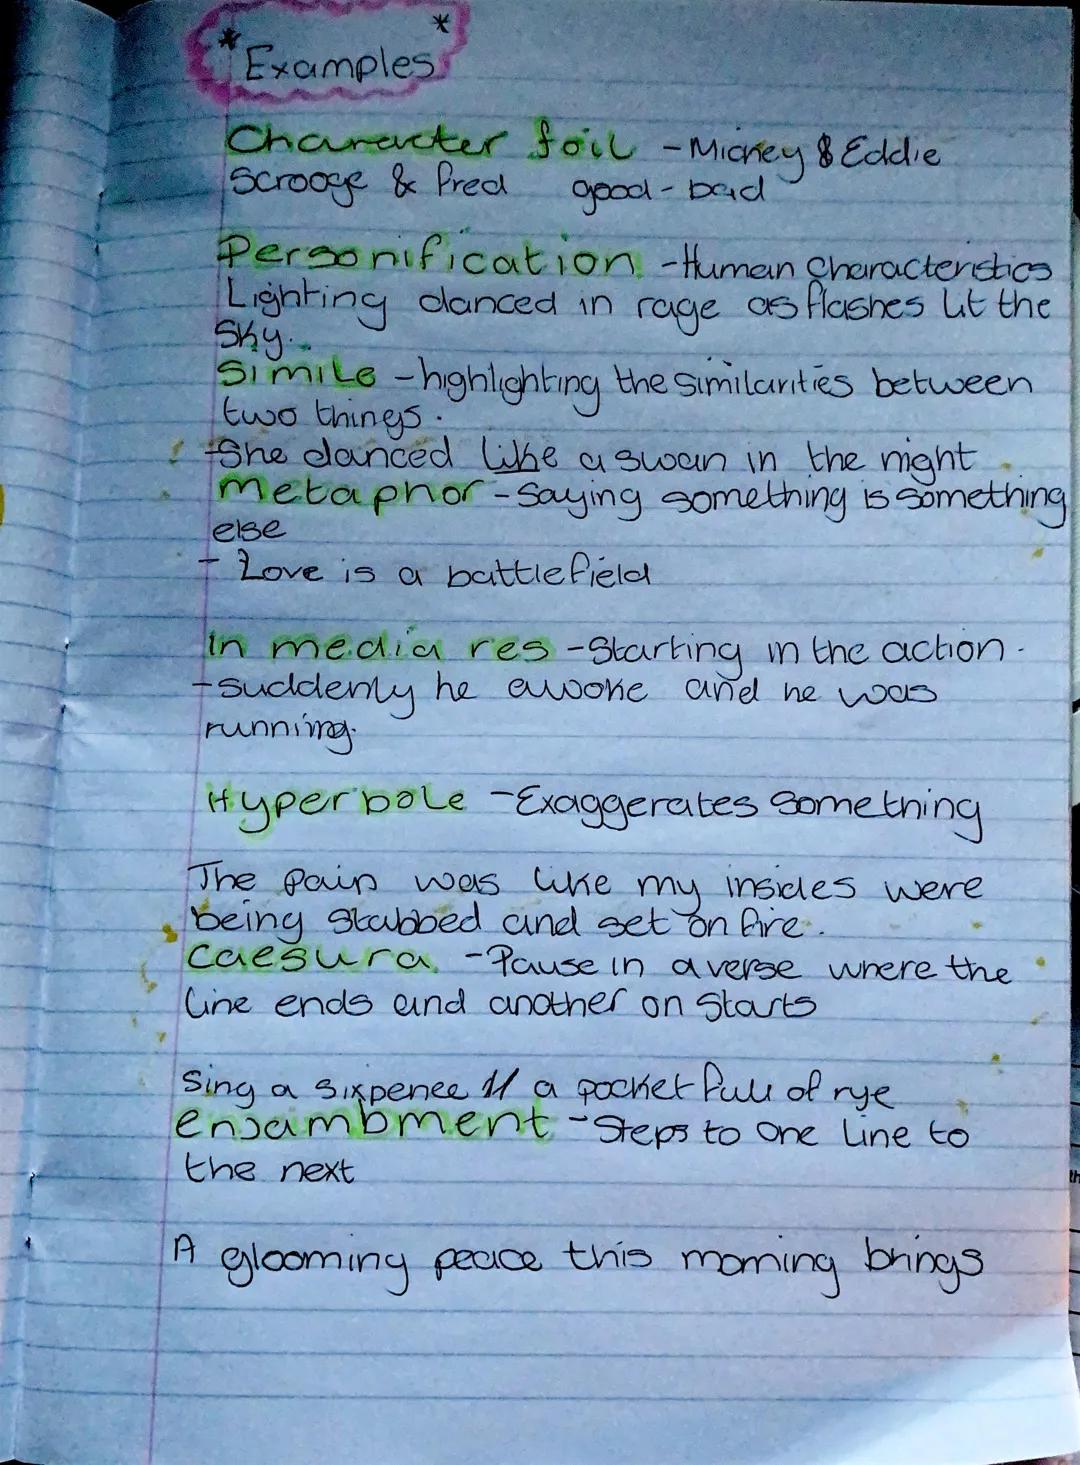 * Examples *
Character foil - Mickey & Eddie
Scrooge & Fred good - bad
Personification - Human Characteristics
Lighting danced in rage as flashes lit the
sky.
Simile - highlighting the similarities between
two things.
- She danced like a swan in the night
Metaphor - Saying something is something
else
- Love is a battlefield
In media res - Starting in the action.
- suddenly he awoke and he was
running.
Hyperbole - Exaggerates something
The pain was like my insides were
being stabbed and set on fire.
Caesura - Pause in a verse where the
line ends and another on starts
Sing a sixpence // a pocket full of rye
enjambment - Steps to one line to
the next
A glooming peace this morning brings